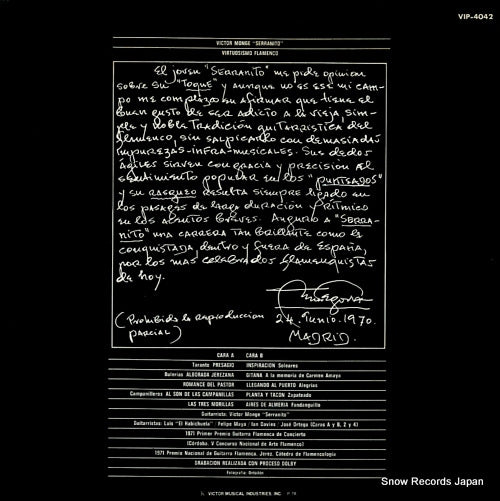 VIP-4042
VICTOR MONGE "SERRANITO"
VIRTUOSISMO FLAMENCO
El joven "SERRANITO" me pide opinion
sobre su "Toque" y aunque no es ese mi cam-
po me complazco en afirmar que tiene el
buen gusto de ser adicto a la vieja, sim-
ple y noble tradición guitarristica del
flamenco, sin salpicarlo con demasiadas
impurezas-infra-musicales. Sus dedos
ágiles sirven con gracia y precisión el
sentimiento popular en los "punteados"
y su rasgueo resulta siempre ligado en
los pasages de larga duración y rítmico
en los acentos breves. Auguro a "Serra-
nito" una carrera tan brillante como la
conquistada, dentro y fuera de España,
por los mas celebrados flamenquistas
de hoy.
24. Junio. 1970.
(Prohibida la reproduccion
parcial)
MADRID.
CARA A CARA B
Taranto PRESAGIO INSPIRACION Soleares
Bulerias ALBORADA JEREZANA GITANA A la memoria de Carmen Amaya
ROMANCE DEL PASTOR LLEGANDO AL PUERTO Alegrias
Campanilleros AL SON DE LAS CAMPANILLAS PLANTA Y TACON Zapateado
LAS TRES MORILLAS AIRES DE ALMERIA Fandanguillo
Guitarrista: Victor Monge "Serranito"
Guitarristas: Luis "El Habichuela" / Felipe Maya / Ian Davies / José Ortega (Caras A y B, 2 y 4)
1971 Primer Premio Guitarra Flamenca de Concierto
(Córdoba. V Concurso Nacional de Arte Flamenco)
1971 Premio Nacional de Guitarra Flamenca. Jerez. Cátedra de Flamencología
GRABACION REALIZADA CON PROCESO DOLBY
Fotografia:
VICTOR MUSICAL INDUSTRIES, INC.
Snow Records Japan